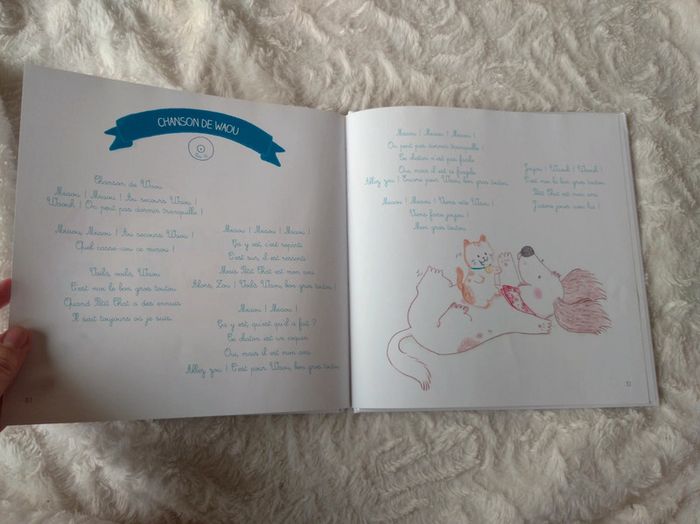 CHANSON DE WAOU
Chanson de Waou
Meaou ! Meaou ! Au secours Waou !
Waouh ! On peut pas dormir tranquille !
Meaou, Meaou ! Au secours Waou !
Quel casse-cou ce minou !
Voilà, voilà, Waou
C'est moi le bon gros toutou
Quand Petit Chat a des ennuis
Il sait toujours où je suis.
Meaou ! Meaou ! Meaou !
Ça y est, c'est reparti
C'est sûr, il est ressorti
Mais Petit Chat est mon ami
Alors, Zou ! Voilà Waou, bon gros toutou !
Meaou ! Meaou !
Ça y est, qu'est qu'il a fait ?
Ce chaton est un coquin
Oui, mais il est mon ami
Allez zou ! C'est pour Waou, bon gros toutou
31
Meaou ! Meaou ! Meaou !
On peut pas dormir tranquille !
Ce chaton n'est pas facile
Oui, mais il est si fragile
Allez zou ! Encore pour Waou, bon gros toutou
Meaou ! Meaou ! Viens vite Waou !
Viens faire joujou !
Mon gros toutou
Joujou ! Waouh ! Waouh !
C'est moi le bon gros toutou
Petit Chat est mon ami
J'adore jouer avec lui !